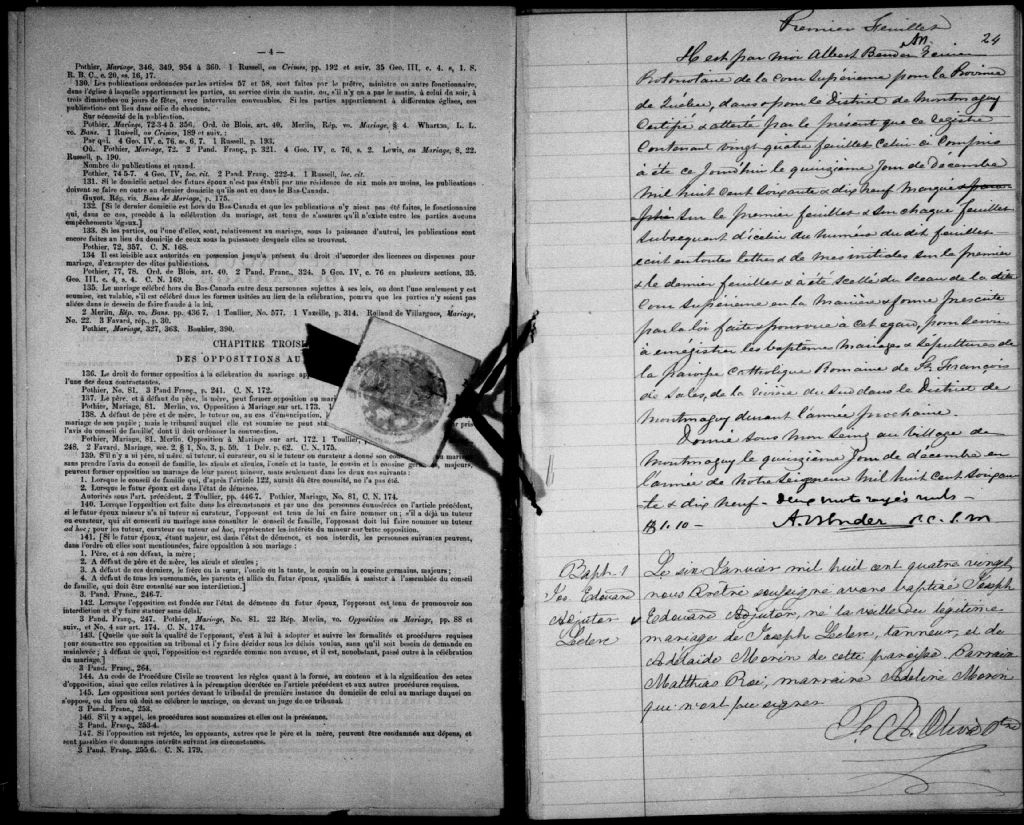 — 4 —
Pothier, Mariage, 346, 349, 954 à 360. 1 Russell, on Crimes, pp. 192 et suiv. 35 Geo. III, c. 4. s, 1. S.
R. B. C., c. 20, ss. 16, 17.
130. Les publications ordonnées par les articles 57 et 58, sont faites par le prêtre, ministre ou autre fonctionnaire,
dans l'église à laquelle appartiennent les parties, au service divin du matin, ou, s'il n'y en a pas le matin, à celui du soir, à
trois dimanches ou jours de fêtes, avec intervalles convenables. Si les parties appartiennent à différentes églises, ces
publications ont lieu dans celle de chacune.
Sur nécessité de la publication.
Pothier, Mariage, 72-3-4 5. 356. Ord. de Blois, art. 40. Merlin, Rép. vo. Mariage, § 4. Wharton, L. L.
vo. Bans. 1 Russell, on Crimes, 189 et suiv. :
Par qui. 4 Geo. IV, c. 76, s. 6, 7. 1 Russell, p. 193.
Où. Pothier, Mariage, 72. 2 Pand. Franç., p. 321. 4 Geo. IV, c. 76, s. 2. Lewis, on Mariage, 8, 22.
Russell, p. 190.
Nombre de publications et quand.
Pothier, 74 5-7. 4 Geo. IV, loc. cit. 2 Pand. Franç., 222-4. 1 Russell, loc. cit.
131. Si le domicile actuel des futurs époux n'est pas établi par une résidence de six mois au moins, les publications
doivent se faire en outre au dernier domicile qu'ils ont eu dans le Bas-Canada.
Guyot. Rép. vis. Bans de Mariage, p. 175.
132. [Si le dernier domicile est hors du Bas-Canada et que les publications n'y aient pas été faites, le fonctionnaire
qui, dans ce cas, procède à la célébration du mariage, est tenu de s'assurer qu'il n'existe entre les parties aucuns
empêchements légaux.]
133. Si les parties, ou l'une d'elles, sont, relativement au mariage, sous la puissance d'autrui, les publications sont
encore faites au lieu du domicile de ceux sous la puissance desquels elles se trouvent.
Pothier, 72, 357. C. N. 168.
134 Il est loisible aux autorités en possession jusqu'à présent du droit d'accorder des licences ou dispenses pour
mariage, d'exempter des dites publications.
Pothier, 77, 78. Ord. de Blois, art. 40. 2 Pand. Franç., 324. 5 Geo. IV, c. 76 en plusieurs sections, 35.
Geo. III, c. 4, s. 4. C. N. 169.
135. Le mariage célébré hors du Bas-Canada entre deux personnes sujettes à ses lois, ou dont l'une seulement y est
soumise, est valable, s'il est célébré dans les formes usitées au lieu de la célébration, pourvu que les parties n'y soient pas
allées dans le dessein de faire fraude à la loi.
2 Merlin, Rép. vo. Bans. pp. 436 7. 1 Toullier, No. 577. 1 Vazeille, p. 314. Rolland de Villargues, Mariage,
No. 22. 3 Favard, rép., p. 30.
Pothier, Mariage, 327, 363. Bouhier, 390.
CHAPITRE TROIS
DES OPPOSITIONS AU
136. Le droit de former opposition à la célébration du mariage app
l'une des deux contractantes.
Pothier, No. 81. 3 Pand Franç., p. 241. C. N. 172.
137. Le père, et à défaut du père, la mère, peut former opposition au mar
Pothier, Mariage, 81. Merlin, vo. Opposition à Mariage sur art. 173. 1
138. A défaut de père et de mère, le tuteur ou, au cas d'émancipation, l
mariage de son pupile ; mais le tribunal auquel elle est soumise ne peut sta
l'avis du conseil de famille, dont il doit ordonner la convocation.
Pothier, Mariage, 81. Merlin, Opposition à Mariage sur art. 172. 1 Toullier,
248. 2 Favard, Mariage, sec. 2, § 1, No. 3, p. 59. 1 Delv. p. 62. C. N. 175.
139. S'il n'y a ni père, ni mère, ni tuteur, ni curateur, ou si le tuteur ou curateur a donné son
sans prendre l'avis du conseil de famille, les aïeuls et aïeules, l'oncle et la tante, le cousin et la cousine germains, majeurs,
peuvent former opposition au mariage de leur parent mineur, mais seulement dans les deux cas suivants :
1. Lorsque le conseil de famille qui, d'après l'article 122, aurait dû être consulté, ne l'a pas été.
2. Lorsque le futur époux est dans l'état de démence.
Autorités sous l'art. précédent. 2 Toullier, pp. 446-7. Pothier, Mariage, No. 81, C. N. 174.
140. Lorsque l'opposition est faite dans les circonstances et par une des personnes énoncées en l'article précédent,
si le futur époux mineur n'a ni tuteur ni curateur, l'opposant est tenu de lui en faire nommer un ; s'il a déjà un tuteur
ou curateur, qui ait consenti au mariage sans consulter le conseil de famille, l'opposant doit lui faire nommer un tuteur
ad hoc ; pour les tuteur, curateur ou tuteur ad hoc, représenter les intérêts du mineur sur cette opposition.
141. [Si le futur époux, étant majeur, est dans l'état de démence, et non interdit, les personnes suivantes peuvent,
dans l'ordre où elles sont mentionnées, faire opposition à son mariage :
1. Père, et à son défaut, la mère ;
2. A défaut de père et de mère, les aïeuls et aïeules ;
3. A défaut de ces derniers, le frère ou la sœur, l'oncle ou la tante, le cousin ou la cousine germains, majeurs ;
4. A défaut de tous les susnommés, les parents et alliés du futur époux, qualifiés à assister à l'assemblée du conseil
de famille, qui doit être consulté sur son interdiction.]
3. Pand. Franç., 246-7.
142. Lorsque l'opposition est fondée sur l'état de démence du futur époux, l'opposant est tenu de promouvoir son
interdiction et d'y faire statuer sans délai.
3 Pand. Franç., 247. Pothier, Mariage, No. 81. 22 Rép. Merlin, vo. Opposition au Mariage, pp. 88 et
suiv., et No. 4 sur art. 174. C. N. 174.
143. [Quelle que soit la qualité de l'opposant, c'est à lui à adopter et suivre les formalités et procédures requises
pour soumettre son opposition au tribunal et l'y faire décider sous les délais voulus, sans qu'il soit besoin de demande en
mainlevée ; à défaut de quoi, l'opposition est regardée comme non avenue, et il est, nonobstant, passé outre à la célébration
du mariage.]
3 Pand. Franç., 264.
144. Au code de Procédure Civile se trouvent les règles quant à la forme, au contenu et à la signification des actes
d'opposition, ainsi que celles relatives à la péremption décrétée en l'article précédent et aux autres procédures requises.
145. Les oppositions sont portées devant le tribunal de première instance du domicile de celui au mariage duquel on
s'oppose, ou du lieu où doit se célébrer le mariage, ou devant un juge de ce tribunal.
3 Pand. Franç., 253.
146. S'il y a appel, les procédures sont sommaires et elles ont la préséance.
3 Pand. Franç., 253-4.
147. Si l'opposition est rejetée, les opposants, autres que le père et la mère, peuvent être condamnés aux dépens, et
sont passibles de dommages intérêts suivant les circonstances.
3 Pand. Franç. 255-6. C. N. 179.
Premier Feuillet
24
Il est par moi Albert Bender
Protonotaire de la cour Supérieure pour la Province
de Québec, dans & pour le District de Montmagny
Certifié & attesté par le présent que ce registre
Contenant vingt quatre feuillets celui ci compris
a été ce jourd'hui le quinzième jour de Décembre
mil huit cent soixante & dix neuf marqué
sur le premier feuillet & sur chaque feuillet
subsequent d'icelui du numéro du dit feuillet
écrit en toutes lettres & de mes initiales sur le premier
& le dernier feuillet & a été scellé du sceau de la dite
Cour Supérieure en la manière & forme prescrite
par la loi faite & pourvue à cet égard, pour servir
à enrégistrer les baptêmes mariages & sépultures de
la paroisse Catholique Romaine de St. François
de Sales, de la rivière du Sud dans le District de
Montmagny durant l'année prochaine.
Donné sous mon seing au village de
Montmagny le quinzième jour de décembre en
l'année de Notre Seigneur mil huit cent soixan-
te & dix neuf - deux mots rayés nuls -
A. Bender P. C. S. M
Baph. 1
Jos. Edouard
Adjutor
Leclerc
Le six Janvier mil huit cent quatre vingt
nous Prêtre soussigné avons baptisé Joseph
Edouard Adjutor, né la veille du légitime
mariage de Joseph Leclerc, tanneur, et de
Adélaïde Morin de cette paroisse. Parrain
Matthias Roi, marraine Adeline Moron
qui n'ont pu signer